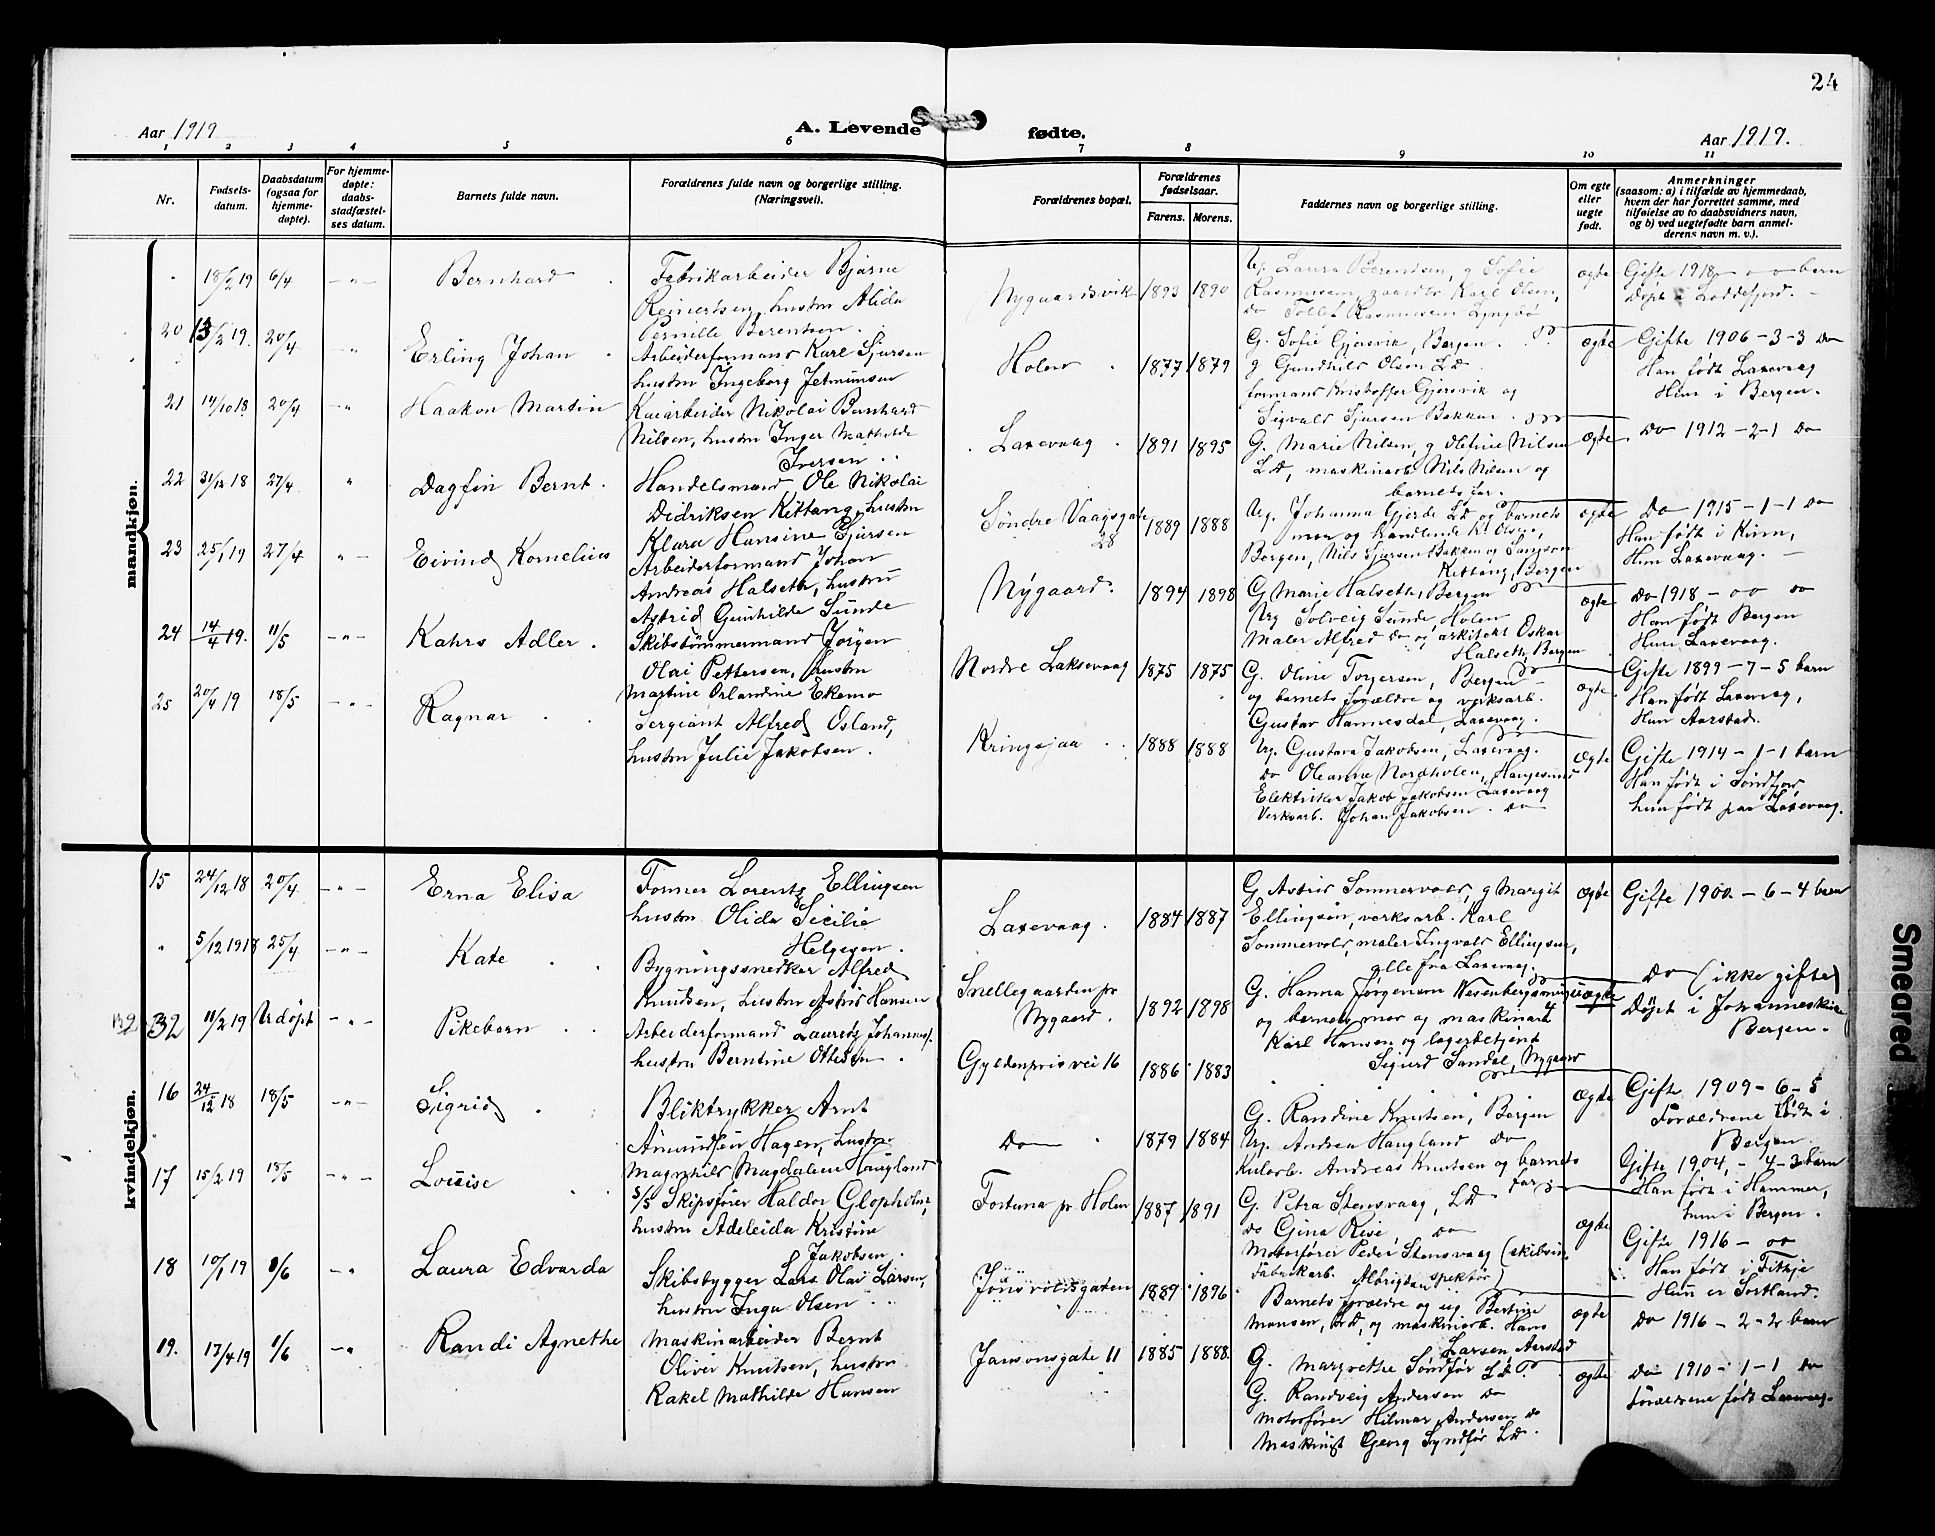 24
Aar 1919
A. Levende
fødte.
Aar 1919.
1 2 3 4 5 6 7 8 9 10 11
Nr.
Fødsels-
datum.
Daabsdatum
(ogsaa for
hjemme-
døpte).
For hjemme-
døpte:
daabs-
stadfæstel-
ses datum.
Barnets fulde navn.
Forældrenes fulde navn og borgerlige stilling.
(Næringsvei).
Forældrenes bopæl.
Forældrenes
fødselsaar.
Farens. Morens.
Faddernes navn og borgerlige stilling.
Om egte
eller
uegte
født.
Anmerkninger
(saasom: a) i tilfælde av hjemmedaab,
hvem der har forrettet samme, med
tilføielse av to daabsvidners navn,
og b) ved uegtefødte barn anmel-
derens navn m. v.).
mandkjøn.
" 18/2 19 6/4 -"- Bernhard
Fabrikarbeider Bjarne
Reinertsen, hustru Alida
Pernille Berentsen.
Nygaardsvik 1893 1890
Ug. Laura Berentsen, g Sofie
Rasmussen, Karl Olsen,
do Tollef Rasmussen Lyngbø
egte
Gifte 1918 - oo barn
Døpt i Loddefjord. -
20 13/2 19. 20/4 -" Erling Johan
Arbeiderformand Karl Sjursen
hustru Ingeborg Jetmundsen
Holen 1877 1879
G. Sofie Gjersvik, Bergen.
g Gundhild Olsen Ld
formand Kristoffer Gjersvik og
Sigvald Sjursen Bakken.
egte
Gifte 1906 - 3 - 3 do
Han født Laxevaag
Hun i Bergen.
21 14/10 18. 20/4 -" Haakon Martin
Kaiarbeider Nikolai Bernhard
Nilsen, hustru Inger Mathilde
Iversen
Laxevaag 1891 1895
G. Marie Nilsen, g Oletine Nilsen
Ld, maskinarb Nils Nilsen og
barnets far.
egte
do 1912 - 2 - 1 do
22 31/12 18 27/4 " Dagfin Bernt.
Handelsmand Ole Nikolai
Dedriksen Kittang, hustru
Klara Hansine Sjursen
Søndre Vaagsgate
28
1889 1888
Ug. Johanna Gjerde Ld og barnets
mor og handlende K. Olsen,
Bergen, Nils Sjursen Bakken og Samson
Kittang, Bergen
egte
do 1915 - 1 - 1 do
Han født i Kinn,
Hun Laxevaag. -
23 25/1 19 27/4 -"- Eivind Kornelius
Arbeiderformand Johan
Andreas Halseth, hustru
Astrid Gunhilde Sunde
Nygaard. 1894 1898
G Marie Halseth, Bergen
Ug Solveig Sunde, Holen
Maler Alfred do og arkitekt Oskar
Halseth, Bergen
egte
do 1918 - oo do
Han født Bergen
Hun Laxevaag.
24 14/4 19. 11/5 -"- Kahrs Adler.
Skibstømmermand Jørgen
Olai Pettersen, hustru
Martine Orlandine Ekemo
Nordre Laksevaag 1875 1875
G. Oline Torgersen, Bergen
og barnets forældre og verksarb.
Gustav Hannesdal, Laxevaag.
egte
Gifte 1899 - 7 - 5 barn
Han født Laxevaag,
Hun Aarstad.
25 20/4 19 18/5 -"- Ragnar
Sergeant Alfred Osland,
hustru Julie Jakobsen.
Kringsjaa 1888 1888
Ug. Gustava Jakobsen, Laxevaag.
do Oleanna Nordholen, Haugesund
Elektriker Jakob Jakobsen Laxevaag
Verksarb. Johan Jakobsen. do
egte
Gifte 1914 - 1 - 1 barn
Han født i Søndfjord,
hun født paa Laxevaag.
kvindekjøn.
15 24/12 18 20/4 -"- Erna Elisa
Former Lorentz Ellingsen
hustru Olida Sicilie
Helgesen.
Laxevaag. 1884 1887
G Astrid Sommervold, g Margit
Ellingsen, verksarb. Karl
Sommervold, maler Ingvald Ellingsen,
alle fra Laxevaag.
egte
Gifte 1900. - 6 - 4 barn
" 5/12 1918 25/4 -"- Kate
Bygningssnedker Alfred
Knudsen, hustru Astrid Hansen
Snellegaarden pr
Nygaard.
1892 1898
G. Hanna Jørgensen
og barnets mor og maskinarb
Karl Hansen og lagerbetjent
Sigurd Sandal, Nygaard
uegte
do (ikke gifte)
Døpt i Johanneskirken
Bergen.
132 11/2 19 Udøpt -"- Pikebarn
Arbeiderformand Lauretz Johannes.
hustru Berntine Ottesen.
Gyldenprisvei 16 1886 1883
egte
Gifte 1909 - 6 - 5
Forældrene født i
Bergen.
16 24/12 18 18/5 -"- Sigrid
Bliktrykker Arnt
Amundsen Hagen, hustru
Magnhild Magdalene Haugland
do 1879 1884
G. Randine Knutsen, Bergen
Ug. Andrea Haugland do
Kularb. Andreas Knutsen og barnets
far
Gifte 1904, - 4 - 3 barn
Han født i Hammer,
hun i Bergen.
17 15/2 19 18/5 -"- Louise
S/S Skipsfører Haldor Glopholm,
hustru Adeleida Kristine
Jakobsen.
Fortuna pr Holen 1887 1891
G. Petra Stensvaag, Ld
do Gina Rise, do
Motorfører Peder Stensvaag (skibsin-
spektør)
Fabrikarb. Albrigtsen
egte
Gifte 1916 - oo
Han født i Fitje
Hun er Sortland.
18 10/1 19 8/6 -" Laura Edvarda
Skibsbygger Lars Olai Larsen,
hustru Inga Olsen
Jonsvoldsgaten 1889 1896
Barnets forældre og ug. Bertine
Monsen, Ld, og maskinarb. Hans
Larsen Aarstad
egte
do 1916 - 2 - 2 barn
19. 17/4 19 1/6 -" Randi Agnethe
Maskinarbeider Bernt
Oliver Knutsen, hustru
Rakel Mathilde Hansen
Jansonsgate 11 1885 1888.
G. Margrethe Søndfør Ld
G. Randveig Andersen do
Motorfører Hilmar Andersen do
Maskinist Georg Syndfør Ld.
egte
do 1910 - 1 - 1 do
Forældrene født Laxevaag.
Smeared